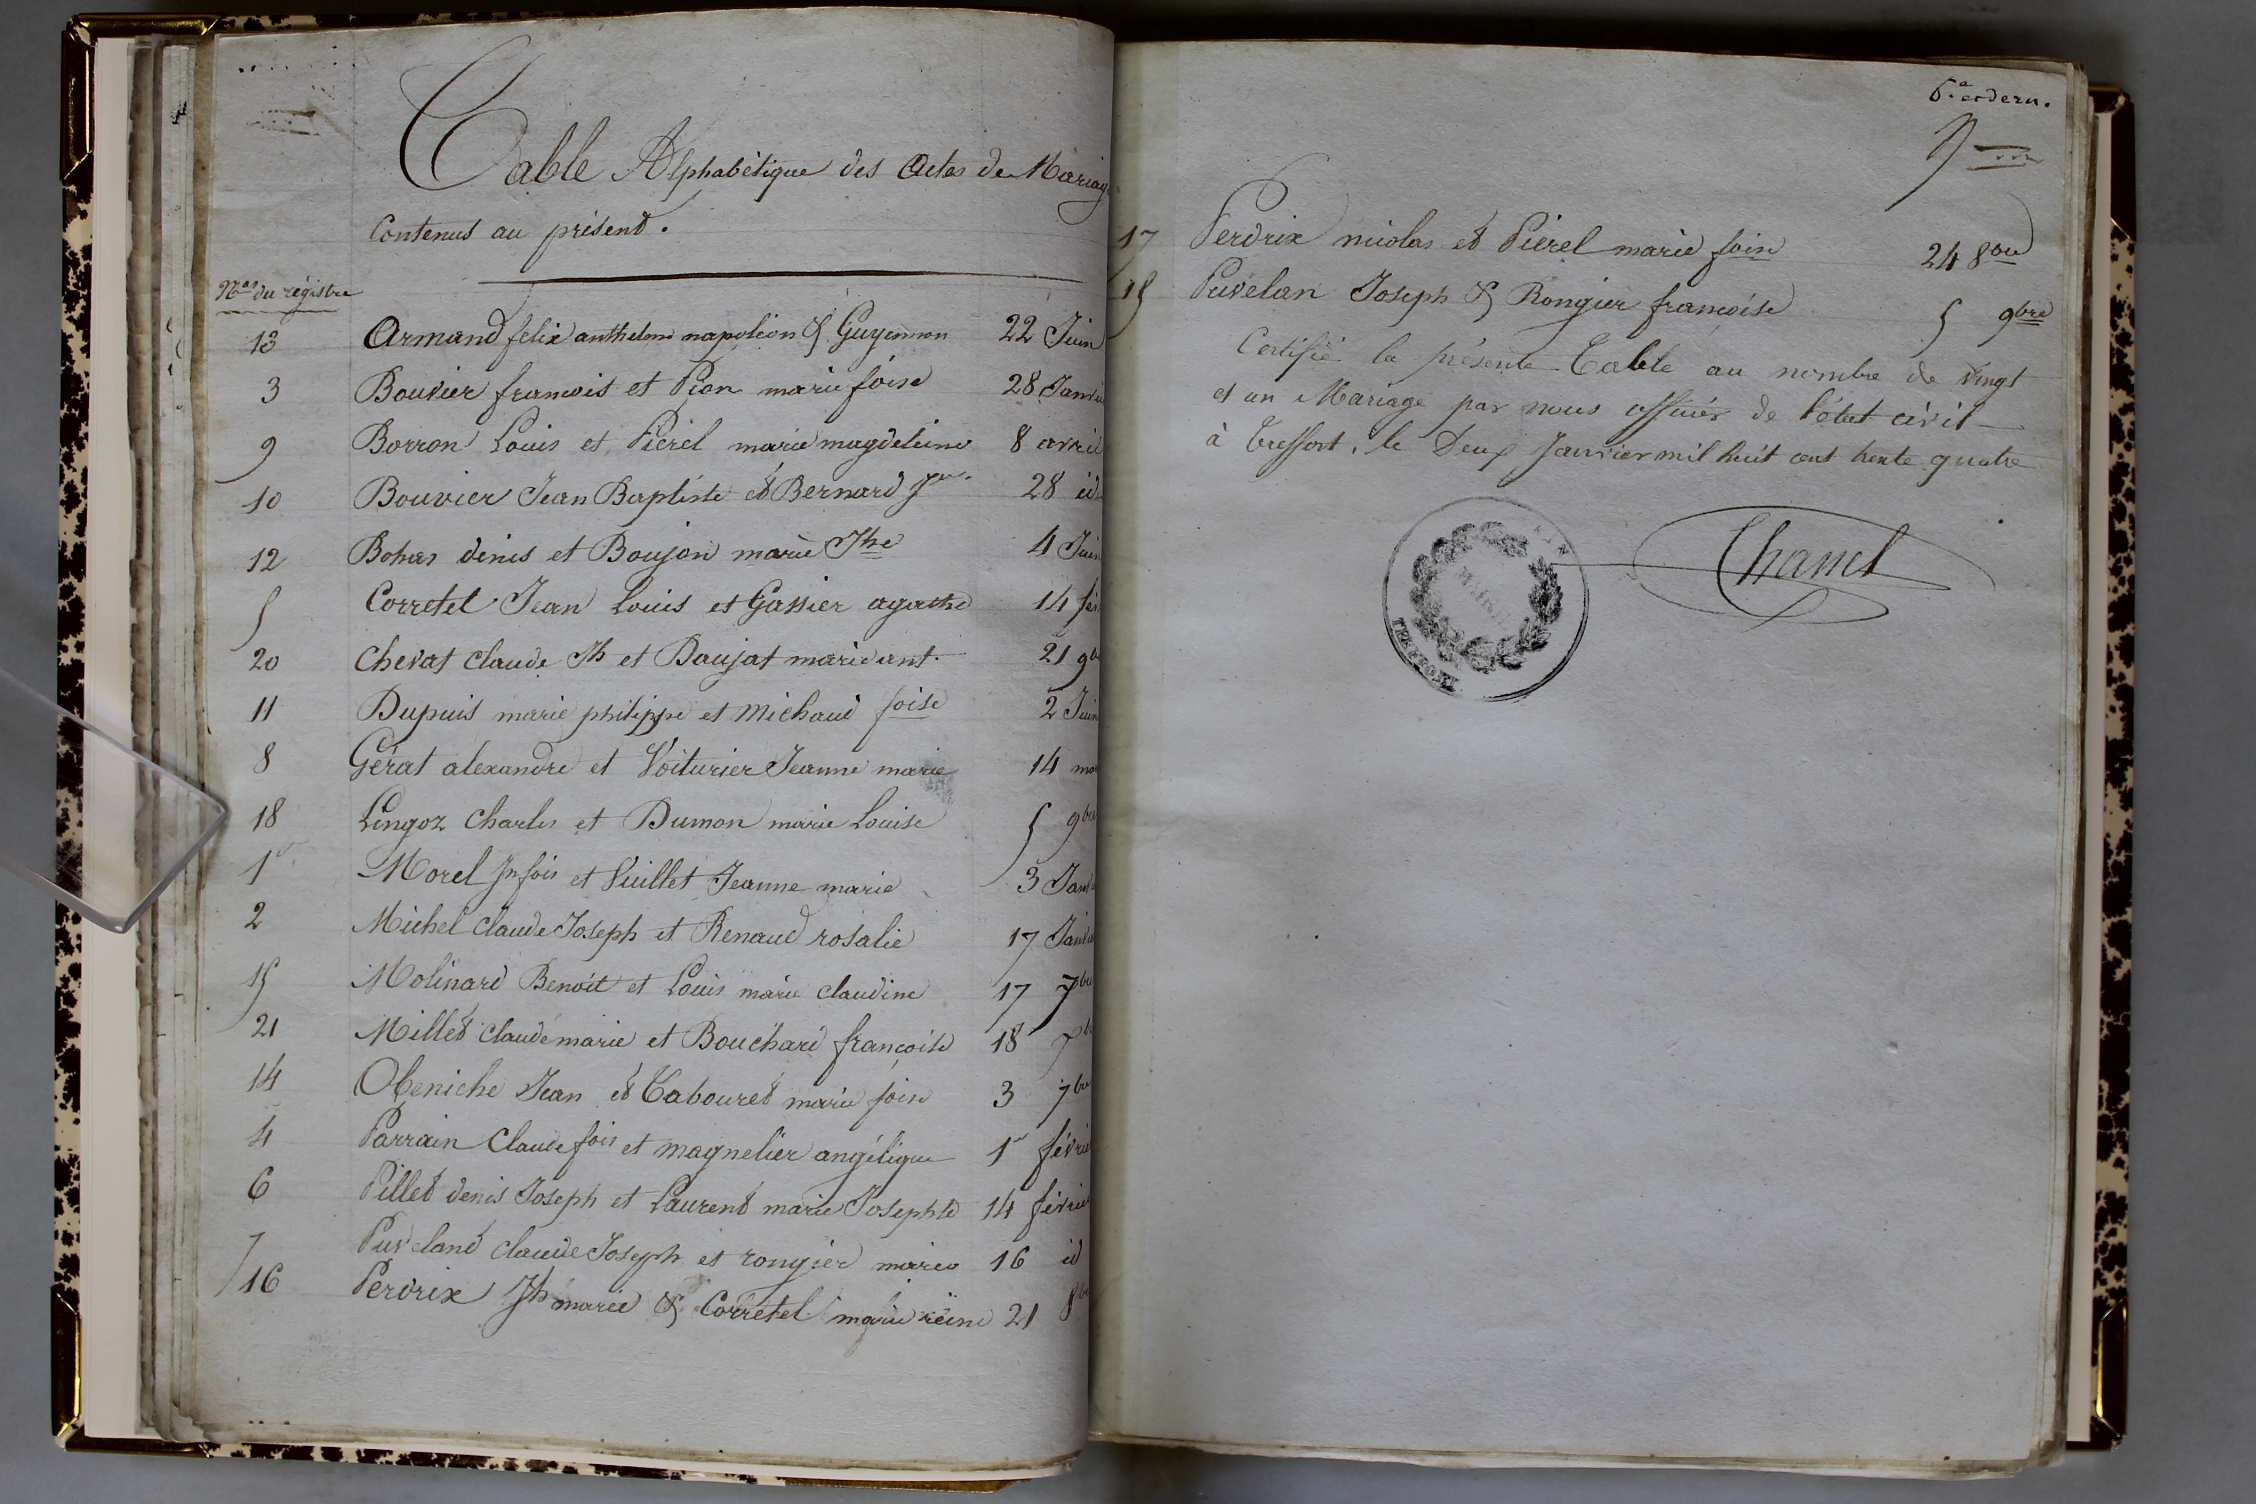 Table Alphabétique des Actes de Mariag
Contenus au présent.
Nos du régistre
13 Armand felix anthelme napoléon & Guyennon 22 Juin
3 Bouvier francois et Pion marie foise 28 Janvi
9 Borron Louis et Piérel marie magdeleine 8 avril
10 Bouvier Jean Baptiste et Bernard 28 id
12 Bohas denis et Boujon marie Jhe 4 Juin
5 Corretel Jean Louis et Gassier agathe 14 fév
20 Chevat Claude Jh et Baujat marie ant. 21 9b
11 Dupuis marie philippe et Michaud foise 2 Juin
8 Gérat aléxandre et Voiturier Jeanne marie 14 mar
18 Lingoz Charles et Dumon marie Louise 5 9bre
1er Morel Jn fois et Vuillet Jeanne marie 3 Janv
2 Michel Claude Joseph et Renaud rosalie 17 Janvi
15 Molinard Benoit et Louis marie claudine 17 7bre
21 Millet Claude marie et Bouchard françoise 18 Xb
14 Obeniche Jean et Tabouret marie foise 3 7bre
4 Parrain Claude fois et magnelier angélique 1er févri
6 Pillet denis Joseph et Laurent marie Josephte 14 févrie
7 Puveland claude Joseph et rongier marie 16 id
16 Perdrix Jh marie & Corretel marie reine 21 8b
6e et dern.
17 Perdrix nicolas et Piérel marie foise 24 8bre
19 Puvelan Joseph & Rongier francoise 5 9bre
Certifié la présente Table au nombre de vingt
et un Mariage par nous officier de l'état civil
à Treffort, le Deux Janvier mil huit cent trente quatre
Chanel
AIN
MAIRIE
TREFFORT